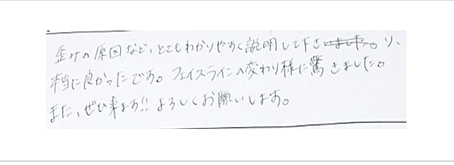 歪みの原因など、とてもわかりやすく説明して下さいました。り、
本当に良かったです。フェイスラインの変わり様に驚きました。
また、ぜひ来ます!! よろしくお願いします。